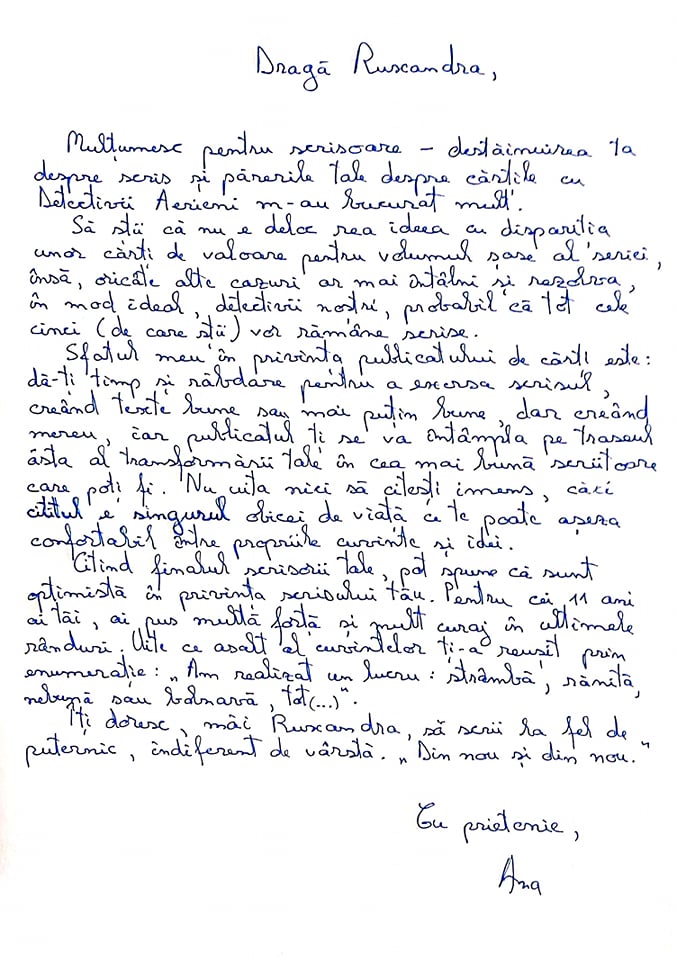 Dragă Ruxandra,
Mulțumesc pentru scrisoare – destăinuirea ta
despre scris și părerile tale despre cărțile cu
Detectivii Aerieni m-au bucurat mult.
Să știi că nu e deloc rea ideea cu dispariția
unor cărți de valoare pentru volumul șase al seriei,
însă, oricâte alte cazuri ar mai întâlni și rezolva,
în mod ideal, detectivii noștri, probabil că tot cele
cinci (de care știi) vor rămâne scrise.
Sfatul meu în privința publicatului de cărți este:
dă-ți timp și răbdare pentru a exersa scrisul,
creând texte bune sau mai puțin bune, dar creând
mereu, iar publicatul ți se va întâmpla pe traseul
ăsta al transformării tale în cea mai bună scriitoare
care poți fi. Nu uita nici să citești imens, căci
cititul e singurul obicei de viață ce te poate așeza
confortabil între propriile cuvinte și idei.
Citind finalul scrisorii tale, pot spune că sunt
optimistă în privința scrisului tău. Pentru cei 11 ani
ai tăi, ai pus multă forță și mult curaj în ultimele
rânduri. Uite ce asalt al cuvintelor ți-a reușit prin
enumerație: „Am realizat un lucru: strâmbă, rănită,
nebună sau bolnavă, tot(...)".
Îți doresc, măi Ruxandra, să scrii la fel de
puternic, indiferent de vârstă. „Din nou și din nou."
Cu prietenie,
Ana